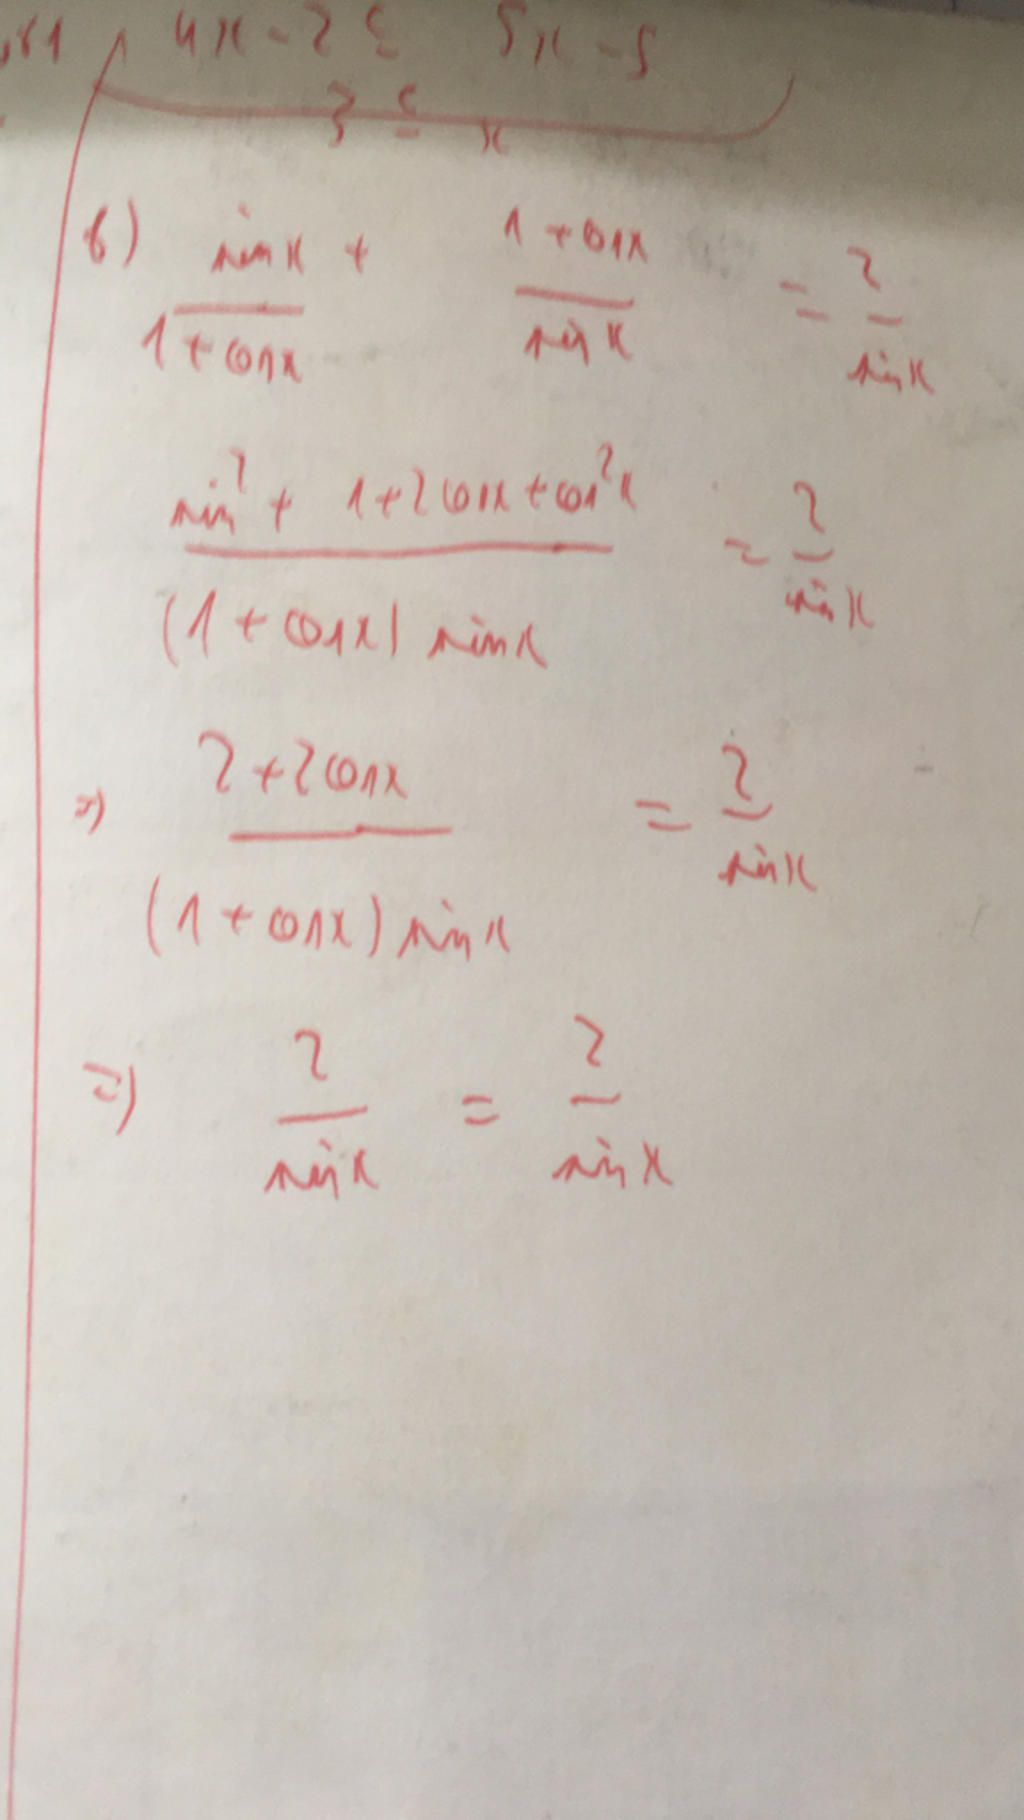 4x - 2 ≤ 5x - 5
3 ≤ x
6) sinx / 1 + cosx + 1 + cosx / sinx = 2 / sinx
sin² + 1 + 2cosx + cos²x / (1 + cosx) sinx = 2 / sinx
=> 2 + 2cosx / (1 + cosx) sinx = 2 / sinx
=> 2 / sinx = 2 / sinx